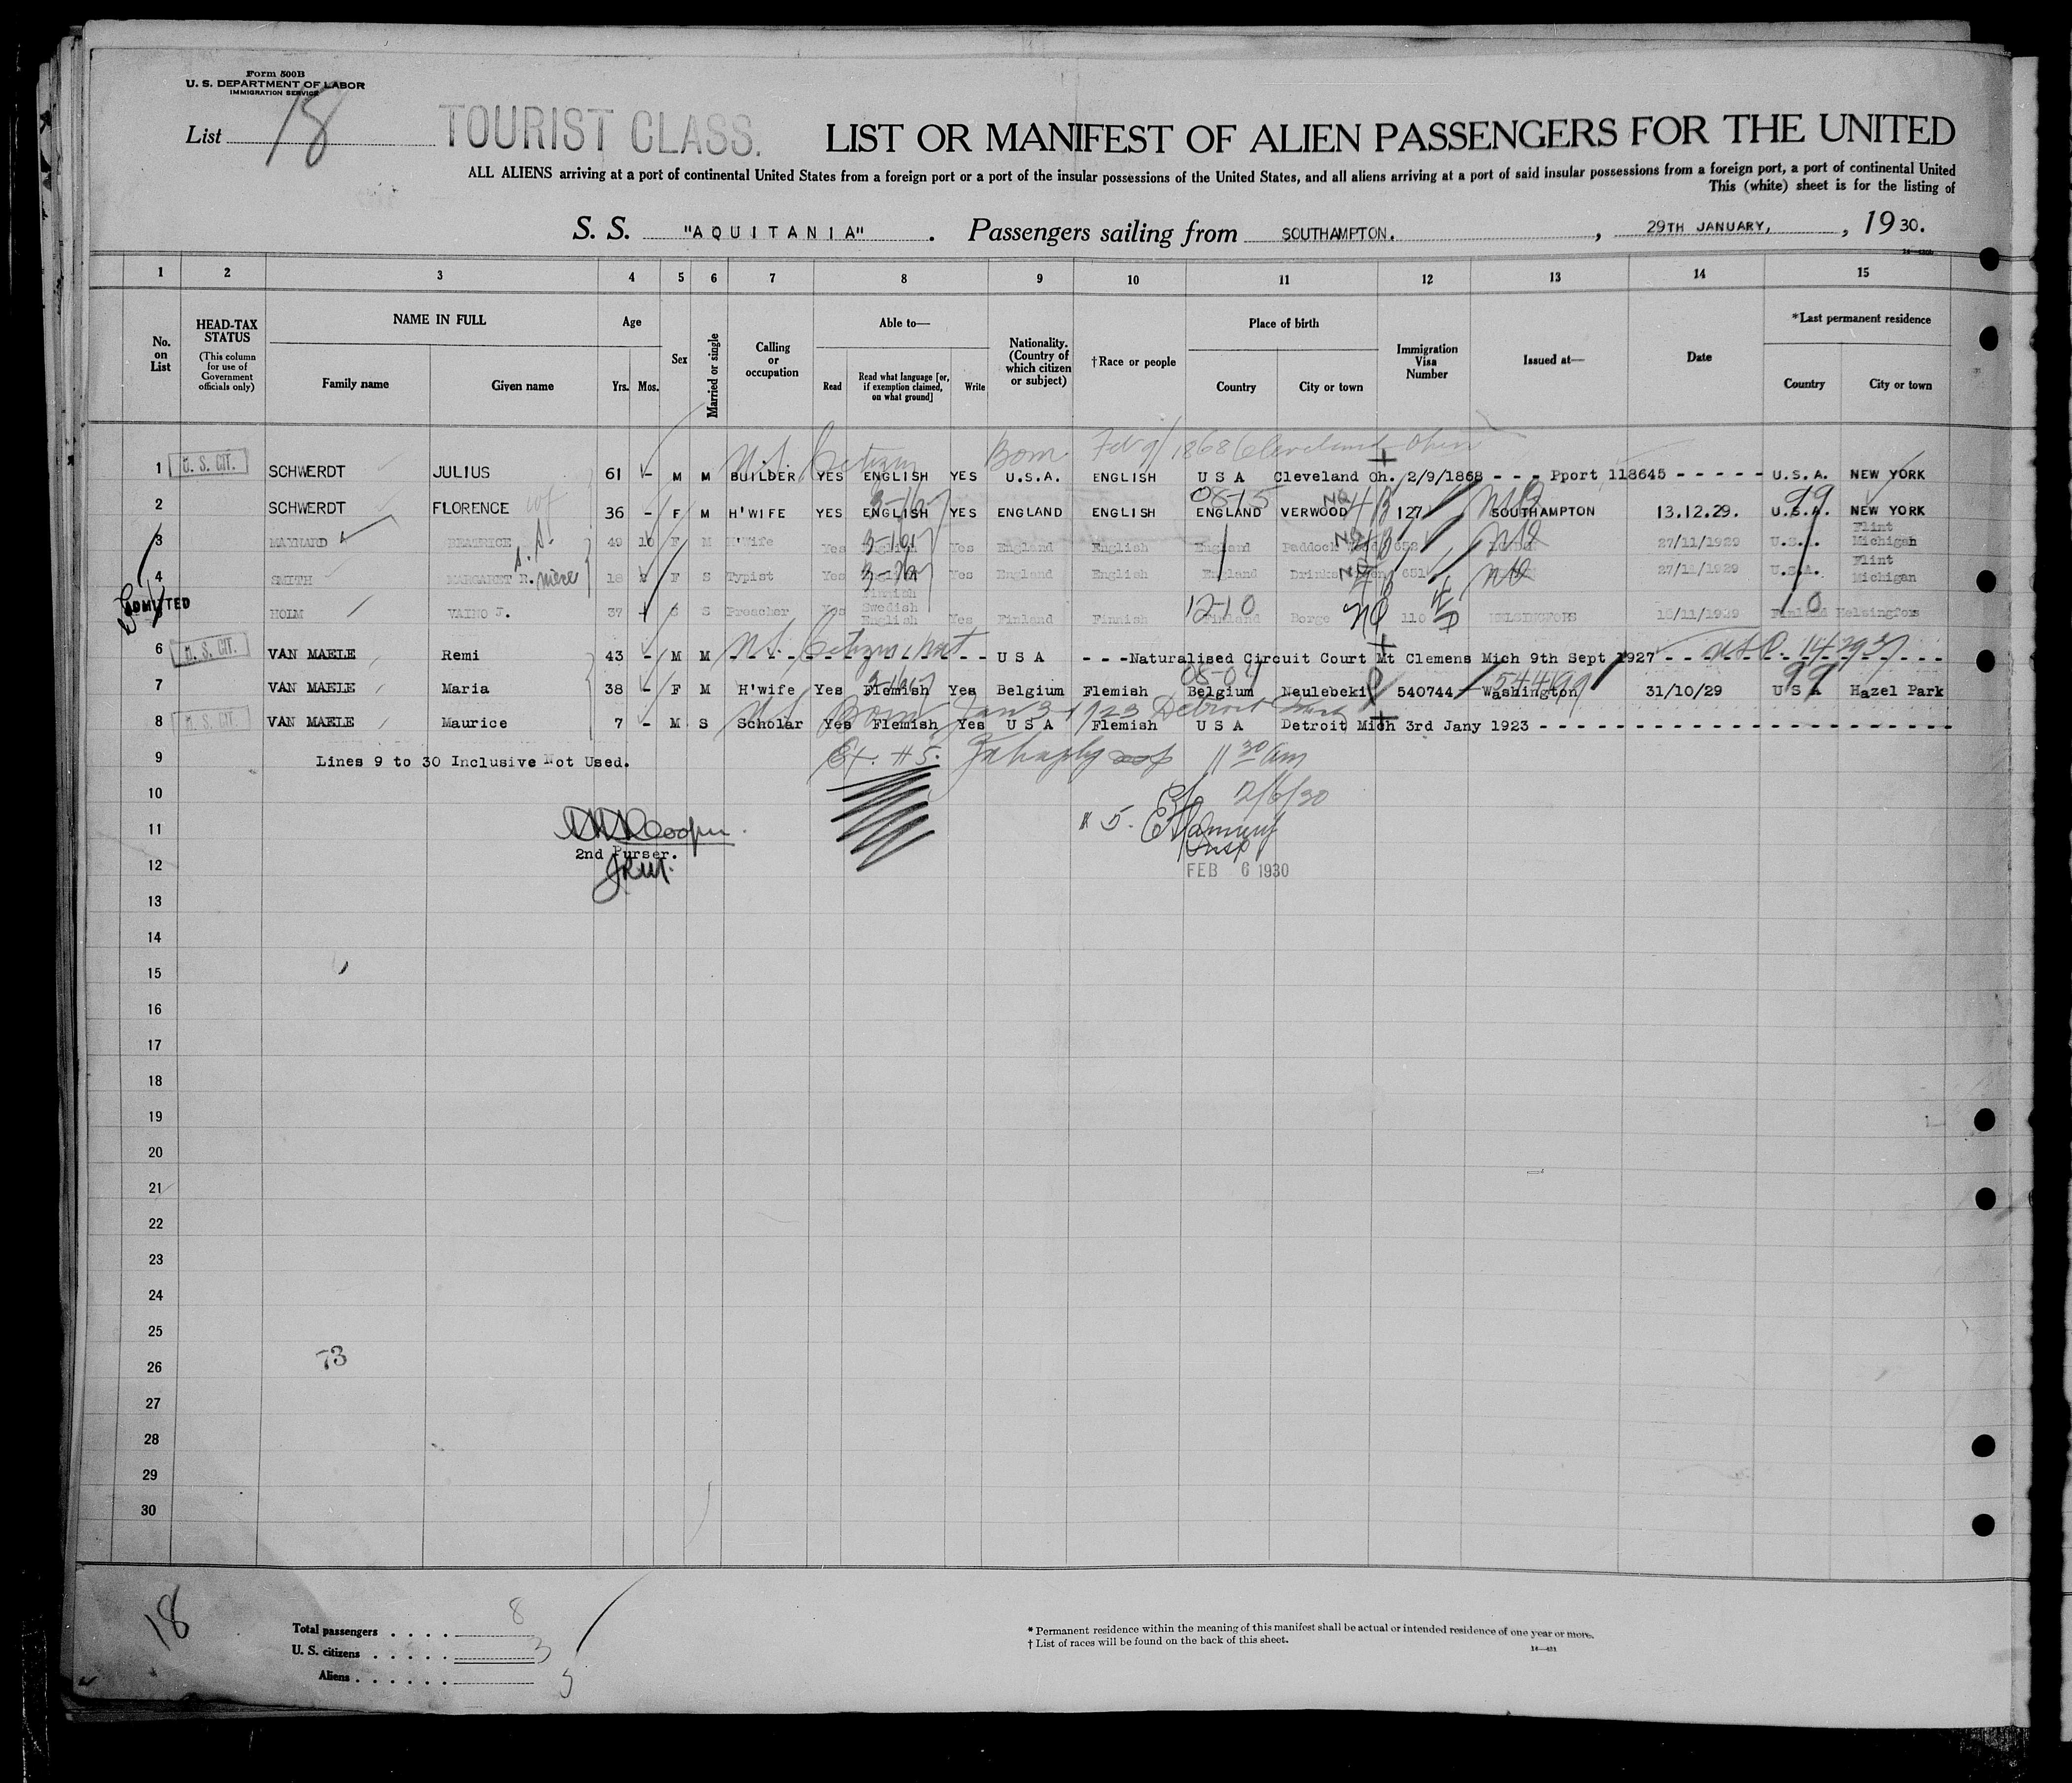 Form 500B
U. S. DEPARTMENT OF LABOR
IMMIGRATION SERVICE
List 18
TOURIST CLASS.
LIST OR MANIFEST OF ALIEN PASSENGERS FOR THE UNITED
ALL ALIENS arriving at a port of continental United States from a foreign port or a port of the insular possessions of the United States, and all aliens arriving at a port of said insular possessions from a foreign port, a port of continental United
This (white) sheet is for the listing of
S. S. "AQUITANIA". Passengers sailing from SOUTHAMPTON. , 29TH JANUARY, , 19 30.
1 2 3 4 5 6 7 8 9 10 11 12 13 14 15
No. on List
HEAD-TAX STATUS
(This column for use of Government officials only)
NAME IN FULL
Family name Given name
Age
Yrs. Mos.
Sex
Married or single
Calling or occupation
Able to—
Read Read what language [or, if exemption claimed, on what ground] Write
Nationality. (Country of which citizen or subject)
†Race or people
Place of birth
Country City or town
Immigration Visa Number
Issued at—
Date
*Last permanent residence
Country City or town
U.S. Citizen Born Feb 9/1868 Cleveland Ohio
1 U. S. CIT. SCHWERDT JULIUS 61 - M M BUILDER YES ENGLISH YES U.S.A. ENGLISH U S A Cleveland Oh. 2/9/1868 - - - Pport 118645 - - - - - U.S.A. NEW YORK
2 SCHWERDT FLORENCE wf 36 - F M H'WIFE YES ENGLISH YES ENGLAND ENGLISH ENGLAND VERWOOD 127 SOUTHAMPTON 13.12.29. U.S.A. NEW YORK
3 MAYNARD BEATRICE 49 10 F M H'Wife Yes English Yes England English England Paddock 652 27/11/1929 U.S.A. Flint Michigan
4 SMITH MARGARET R. niece 18 F S Typist Yes English Yes England English England 651 27/11/1929 U.S.A. Flint Michigan
ADMITTED HOLM VAINO J. 37 S Preacher Yes Finnish Swedish English Yes Finland Finnish Finland Borgo 110 HELSINGFORS Finland Helsingfors
12-10
6 U. S. CIT. VAN MAELE Remi 43 - M M U.S. Citizen, nat USA - - -Naturalised Circuit Court Mt Clemens Mich 9th Sept 1927 - - - - -
7 VAN MAELE Maria 38 - F M H'wife Yes Flemish Yes Belgium Flemish Belgium Neulebeki 540744 Washington 31/10/29 U S A Hazel Park
8 U. S. CIT. VAN MAELE Maurice 7 - M S Scholar Yes Flemish Yes U S A Flemish U S A Detroit Mich 3rd Jany 1923 - - - - -
9 Lines 9 to 30 Inclusive Not Used.
11 30 am
10
2/6/30
11
# 5.
Insp
2nd Purser.
12
FEB 6 1930
13
14
15
16
17
18
19
20
21
22
23
24
25
26 73
27
28
29
30
18
Total passengers . . . . 8
U. S. citizens . . . . . 3
Aliens . . . . . . 5
* Permanent residence within the meaning of this manifest shall be actual or intended residence of one year or more.
† List of races will be found on the back of this sheet.